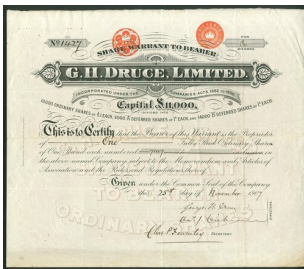 No 1427
SHARE WARRANT TO BEARER
G.H. DRUCE, LIMITED.
INCORPORATED UNDER THE COMPANIES ACTS 1862 TO
Capital £11,000,
DIVIDED INTO
ORDINARY SHARES OF £1 EACH, 1000 A DEFERRED SHARES OF 1/- EACH, AND 14000 B DEFERRED SHARES OF 1/- EACH
This is to Certify that the Bearer of this Warrant is the Proprietor
of One Fully Paid Ordinary Shares
of One Pound each, numbered
the above named Company, subject to the Memorandum and Articles of
Association and the Rules and Regulations thereof.
Given under the Common Seal of the Company
this 25th day of November 1907
George H. Druce
DIRECTORS
SECRETARY